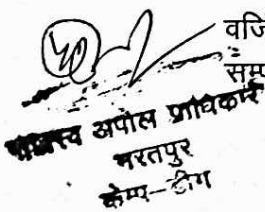 वजि
सम्प
राजस्व अपील प्राधिकारी
भरतपुर
केम्प-डीग